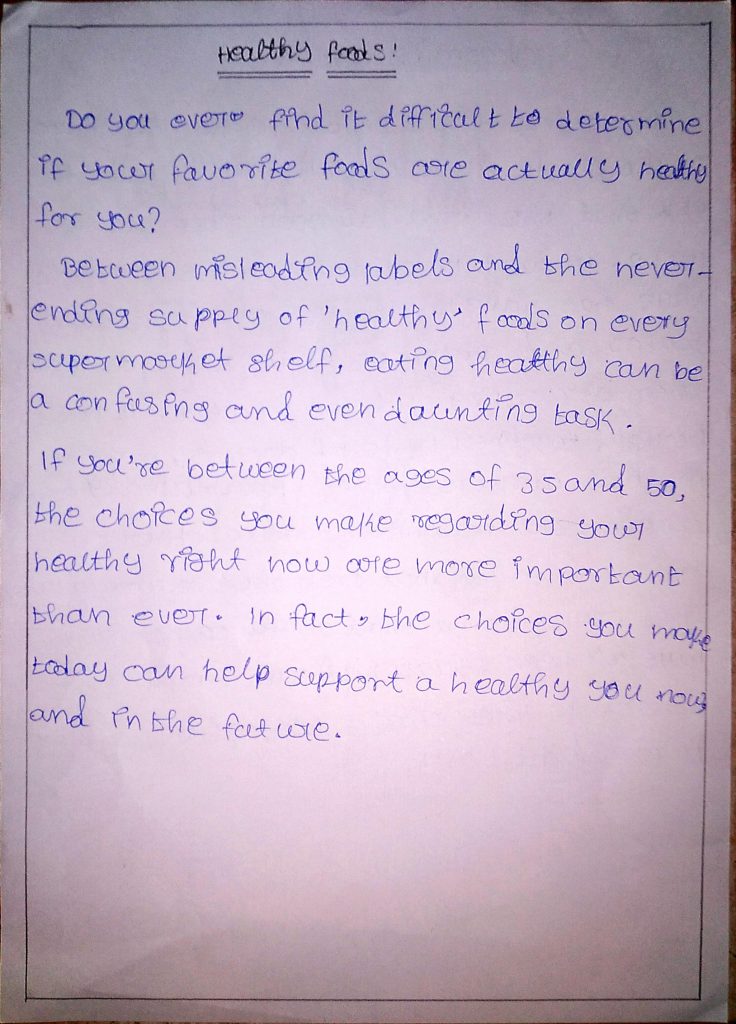 Healthy foods!
Do you ever find it difficult to determine
if your favorite foods are actually healthy
for you?
Between misleading labels and the never-
ending supply of 'healthy' foods on every
supermarket shelf, eating healthy can be
a confusing and even daunting task.
If you're between the ages of 35 and 50,
the choices you make regarding your
healthy right now are more important
than ever. In fact, the choices you make
today can help support a healthy you now,
and in the future.